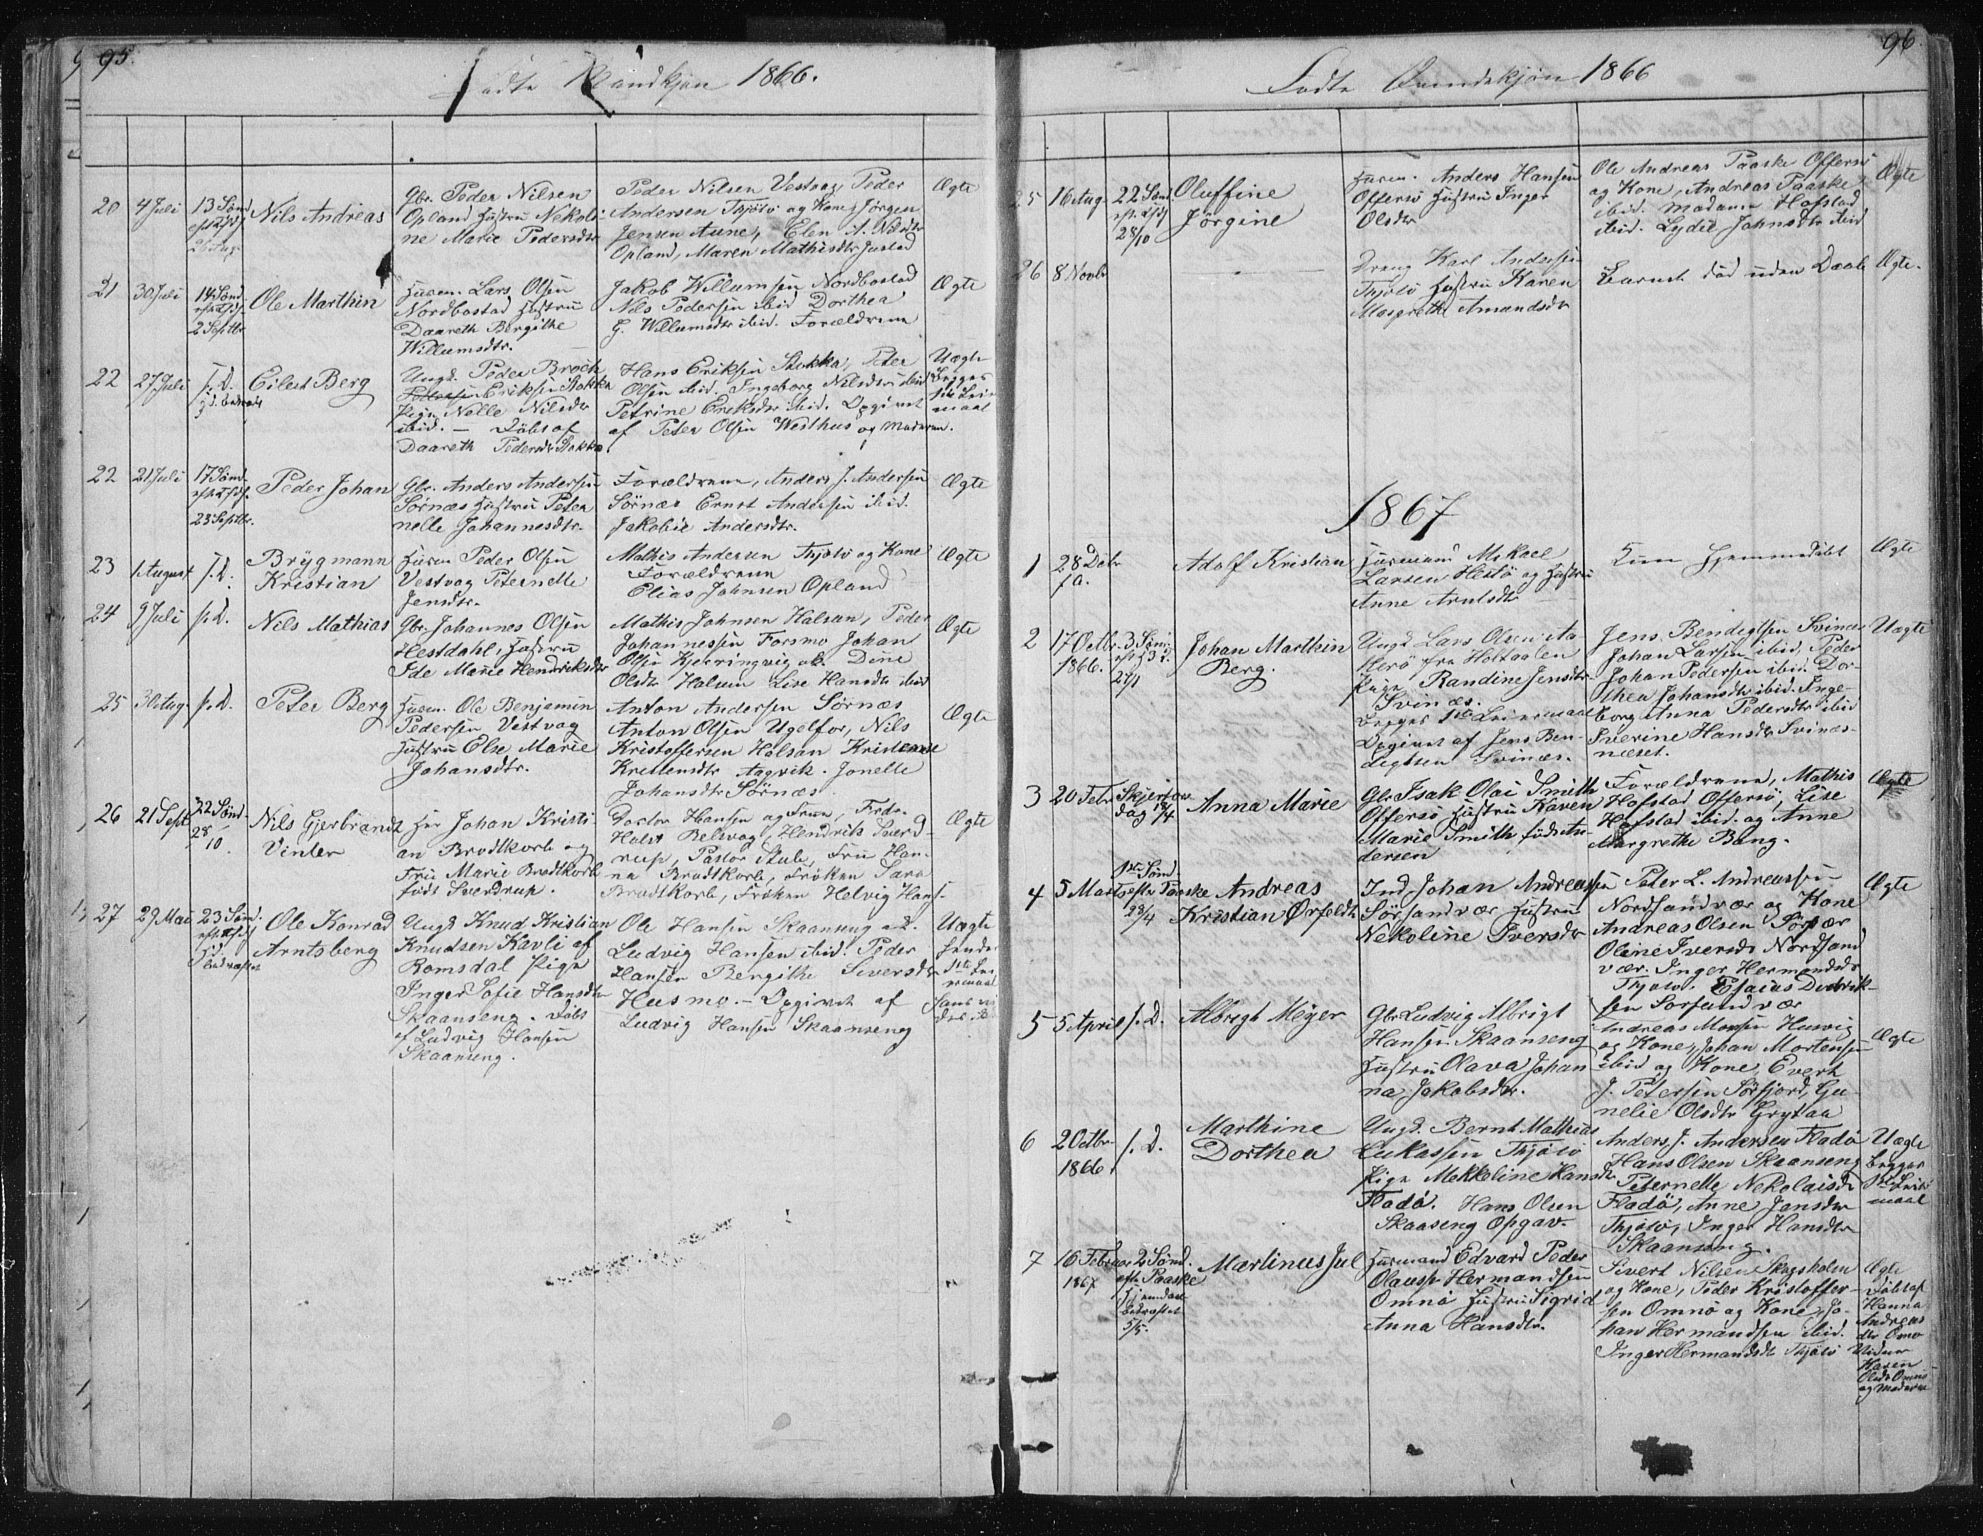 95.
Fødte Mandkjøn 1866.
20 4 Juli 13 Sønd. Nils Andreas
Gbr. Peder Nilsen
Opland Hustru Nekoli
ne Marie Pedersdtr
Peder Nilsen Vestvog Peder
Andersen Thjøtø og Kone, Jørgen
Jensen Aune, Elen A. Nilsdtr
Opland, Maren Mathisdtr
Ægte
21 30 Juli 14 Sønd. 2 Septbr. Ole Marthin
Husm. Lars Olsen
Nordbostad Hustru
Daareth Bergithe
Willumsdtr.
Jakob Willumsen Nordbostad
Nils Pedersen ibid Dorthea
G. Willumsdtr ibid. Forældrene
Ægte
22 27 Juli s. D. Eilert Berg
Ungk. Peder Broch
Eriksen Stokka
Pige Nelle Nilsdtr
ibid. – Døbt af
Daareth Pedersdtr Stokka
Hans Eriksen Stokka, Peter
Olsen ibid. Ingeborg Nilsdtr ibid
Petrine Eriksdtr ibid. Opgivet
af Peter Olsen Westhus og Moderen.
Uægte
Begges
1ste Leier
maal
22 21 Juli 17 Sønd. 23 Septbr. Peder Johan
Gbr. Anders Andersen
Sørnæs Hustru Peter
nelle Johannesdtr.
Forældrene, Anders J. Andersen
Sørnæs Ernst Andersen ibid.
Jakobie Andersdtr.
Ægte
23 1 August s. D. Brygmann
Kristian
Husm Peder Olsen
Vestvog Peternelle
Jensdtr.
Mathis Andersen Thjøtø og Kone
Forældrene
Elias Johnsen Opland
Ægte
24 9 Juli s. D. Nils Mathias
Gbr. Johannes Olsen
Hestdahl, Hustru
Ide Marie Hendriksdtr
Mathis Johnsen Halsan, Peder
Johannessen Forsmo Johan
Olsen Kjerringvig
Olsdtr Halsen Lise Hansdtr ibid
Ægte
25 30 Aug. s. D. Peter Berg
Husm. Ole Benjamin
Pedersen Vestvog
Hustru Else Marie
Johansdtr.
Anton Andersen Sørnæs
Anton Olsen Ugelfor, Nils
Kristoffersen Halsan Kristense
Kristensdtr Aagvik. Jonelle
Johansdtr Sørnæs
Ægte
26 21 Septb 22 Sønd. 28/10. Nils Gjerbrandt
Vinter
Hr Johan Kristi
an Brodtkorb og
Fru Marie Brodtkorb
født Sverdrup.
Doctor Hansen og Frue, Frdr.
Holst Belsvog, Hendrik Sverd-
rup, Pastor Stub, Fru Han-
na Brodtkorb, Frøken Sara
Brodtkorb, Frøken Helvig Hans-
Ægte
27 29 Mai 23 Sønd. Ole Konrad
Arntsberg
Ungk Knud Kristian
Knudsen Kavli af
Romsdal Pige
Inger Sofie Hansdtr
Skaanseng. Døbt
af Ludvig Hansen
Skaanseng.
Ole Hansen Skaanseng
Ludvig Hansen ibid. Peder
Hansen Bergithe Siversdtr
Husmo. – Opgivet af
Ludvig Hansen Skaanseng
Uægte
96.
Fødte Qvindekjøn 1866
25 16 Aug. 22 Sønd. 28/10 Oluffine
Jørgine
Husm. Anders Hansen
Offersø Hustru Inger
Olsdtr
Ole Andreas Paaske Offersø
og Kone, Andreas Paaske
ibid. Madame Hofstad
ibid. Lydie Johnsdtr ibid
Ægte
26 8 Novbr – –
Dreng Karl Andersen
Thjøtø Hustru Karen
Margrethe Amundsdtr
Barnet død uden Daab
Ægte.
1867
1 28 Debr f. a. Adolf Kristian
Husmand Mikael
Larsen Hestø og Hustru
Anne Arntsdtr
Kun hjemmedøbt
Ægte
2 17 Octbr. 1866. 3 Sønd. 27/1 Johan Marthin
Berg.
Ungk Lars Olsen Aa-
fra Holtaalen
Pige Randine Jensdtr
Svinæs.
Begges 1ste Leiermaal
Opgivet af Jens Ben-
digtsen Svinæs.
Jens. Bendigtsen Svinæs
Johan Larsen ibid, Peder
Johan Pedersen ibid. Dor-
thea Johansdtr ibid. Inge-
borg Anna Pedersdtr ibid
Severine Hansdtr Svinæs-
næset.
Uægte
3 20 Febr Skjertors
dag 18/4 Anna Marie
Gbr Isak Olai Smith
Offersø Hustru Karen
Marie Smith født An-
dersen
Forældrene, Mathis
Hofstad Offersø, Lise
Hofstad ibid. og Anne
Margrethe Bang.
Ægte
4 5 Marts 1ste Sønd.
efter Paaske Andreas
Kristian Ørfeldt
Ind. Johan Andreassen
Sørsandvær Hustru
Nekoline Iversdtr
Peter L. Andreassen
Nordsandvær og Kone
Andreas Olsen Sørvær
Oline Iversdtr Nordsand
vær. Inger Hermandsdtr
Thjøtø. Esaias Didrik-
sen Sørsandvær
Ægte
5 5 April s. D. Albrigt Meyer
Gbr Ludvig Albrigt
Hansen Skaanseng
Hustru Olava Johan
na Jakobsdtr.
Andreas Monsen Husvig
og Kone, Johan Mortensen
ibid og Kone, Evert
J. Petersen Sørfjord, Gu-
nelie Olsdtr Grytaa
Ægte
6 2 Octbr 1866 s. D. Marthine
Dorthea
Ungk. Bernt Mathias
Lukassen Thjøtø
Pige Mekkeline Hansdtr
Fladø. Hans Olsen
Skaaseng Opgav.
Anders J. Andersen Fladø
Hans Olsen Skaanseng
Peternelle Nekolaisdtr
Fladø, Anne Jansdtr
Thjøtø, Inger Hansdtr
Skaanseng.
Uægte
begges
1ste Leier
maal
7 16 Februar 1867 2 Sønd.
eft. Paaske
Hjemdaab
bekræftet
5/5. Martinus Jul
Husmand Edvard Peder
Olaus Hermandsen
Omnø Hustru Sigrid
Anna Hansdtr.
Sivert Nilsen Skagsholm
og Kone, Peder Kristoffer-
sen Omnø og Kone, Jo-
han Hermandsen ibid.
Inger Hermandsdtr Thjøtø
Ægte
Døbt af
Hanna
Andreas
dtr Omø
Vidner
Karen
Olsdtr Omnø
og Moderen